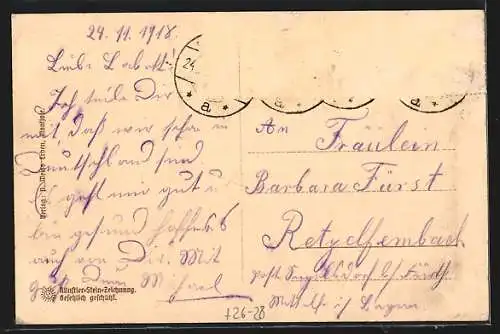 24. 11. 1918.
Liebe Babett!
Ich teile Dir
mit daß wir schon in
Deutschland sind.
Es geht mir gut u
bin gesund hoffe es
auch von Dir. Mit
Gruß Dein Michael
An
Fräulein
Barbara Fürst
Retzelfembach
post b/ Fürth
Mittelfr. i/ Bayern
24
a
a
a
Künstler-Stein-Zeichnung.
Gesetzlich geschützt.
+26-28